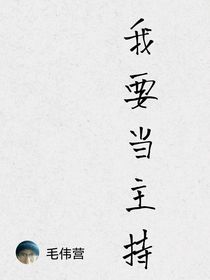 我要当主持
毛伟营